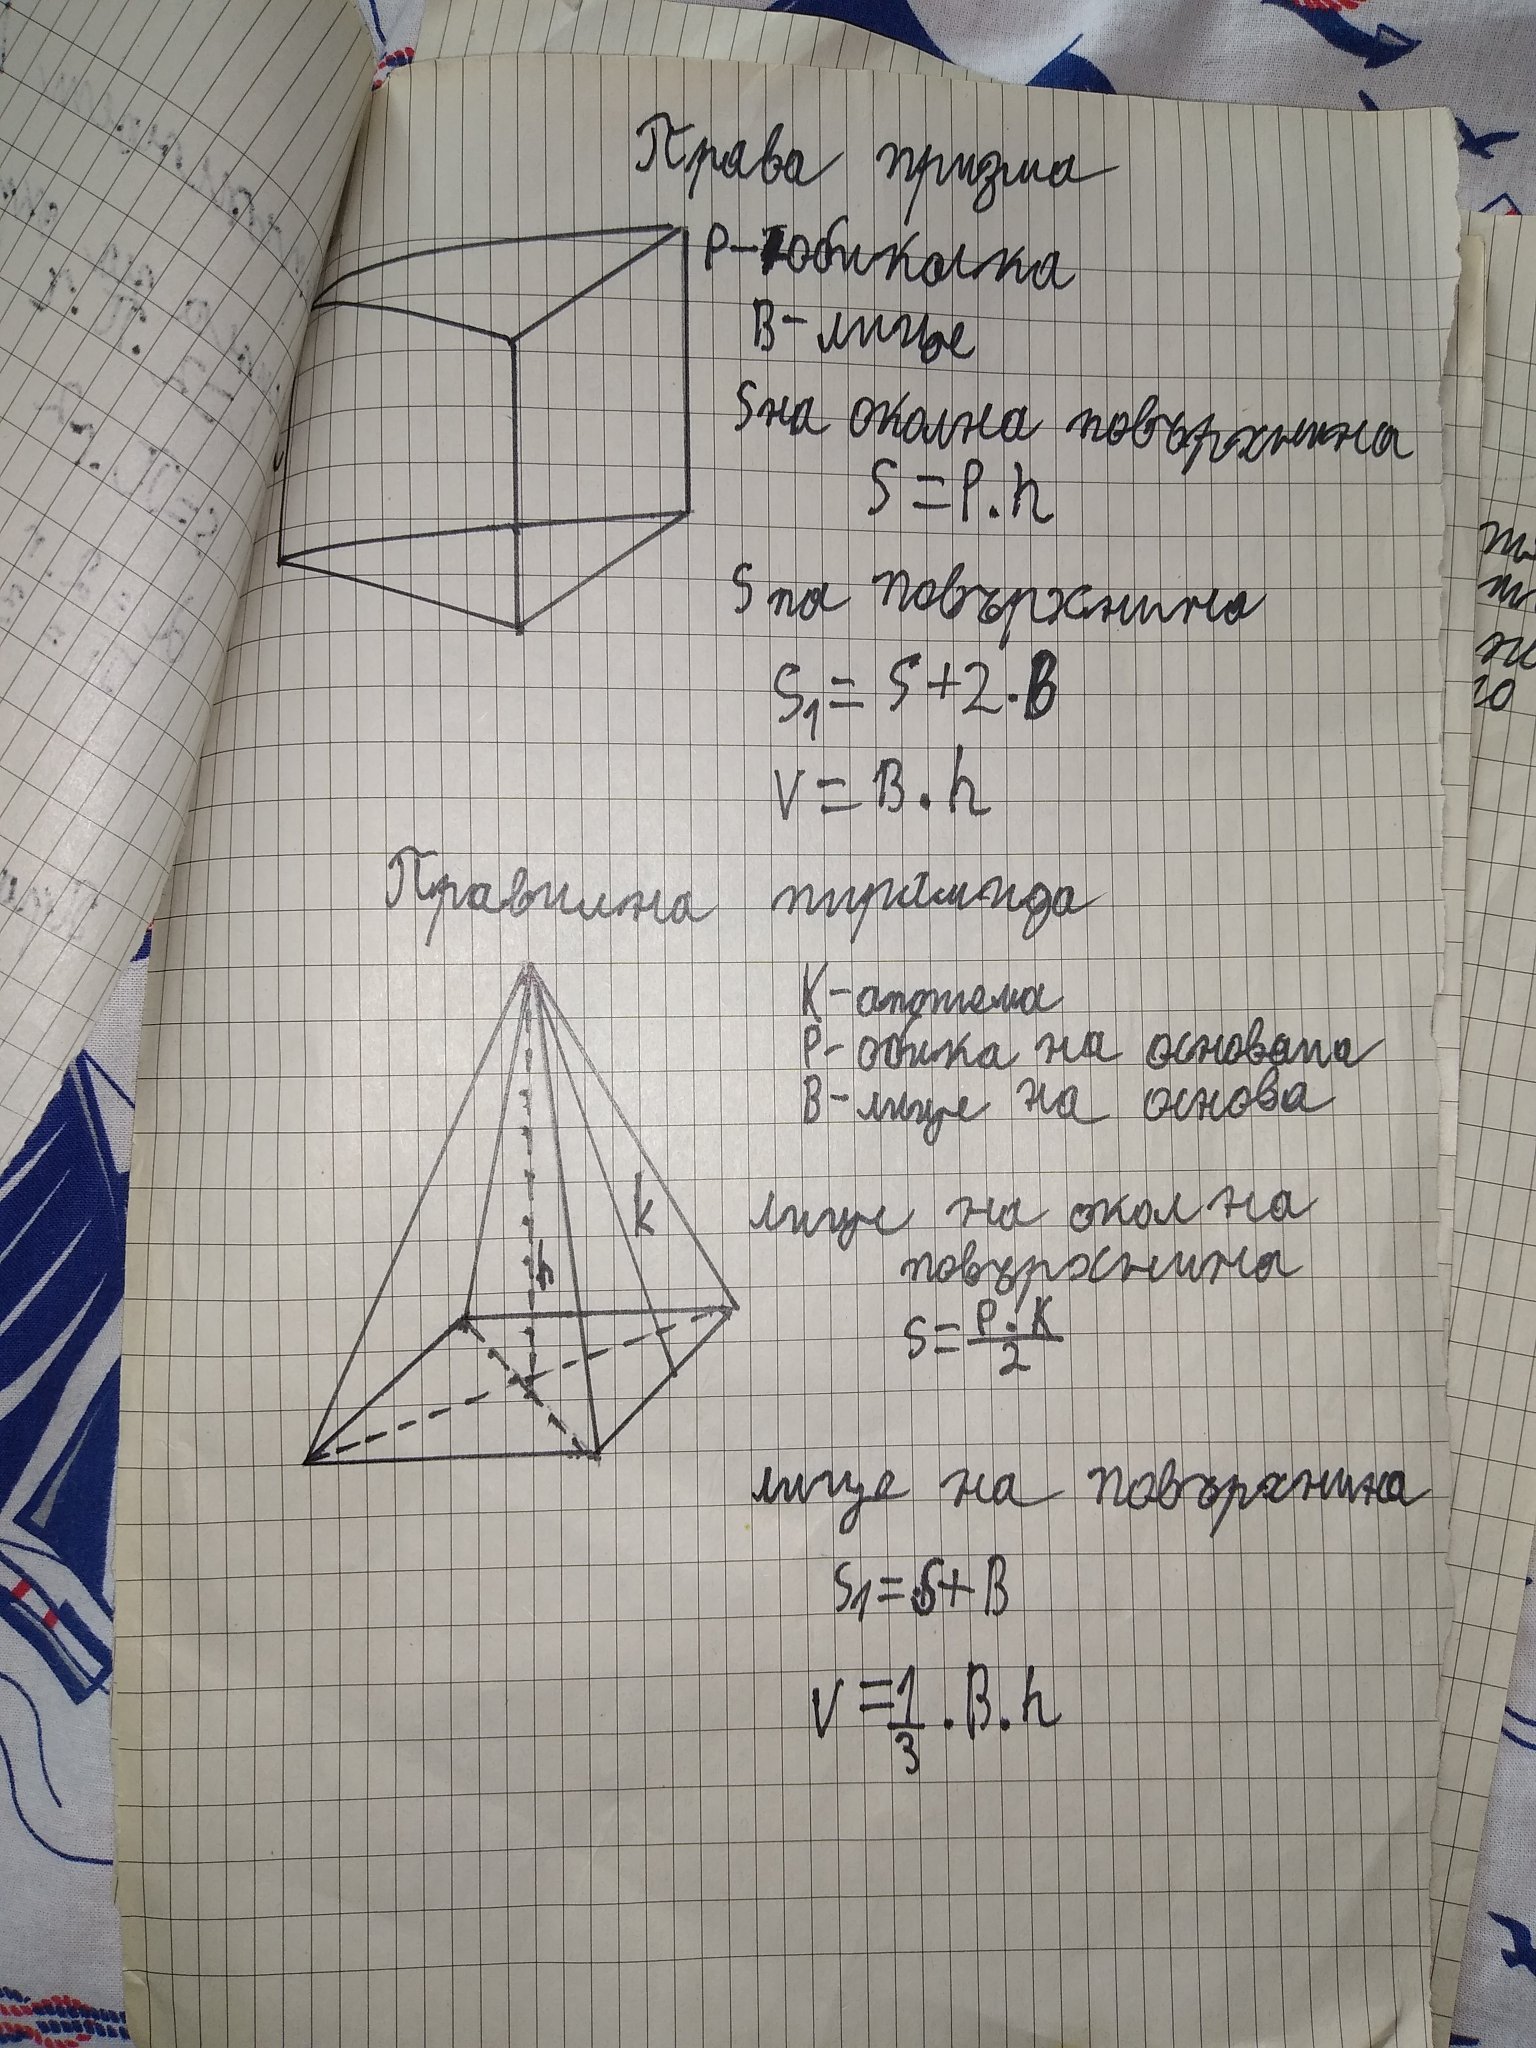 Права призма
P-обиколка
B-лице
S на околна повърхнина
S=P.h
S на повърхнина
S₁=S+2.B
V=B.h
Правилна пирамида
K-апотема
P-обика на основата
B-лице на основа
k
h
лице на околна
повърхнина
S=P.K/2
лице на повърхнина
S₁=S+B
V=1/3.B.h